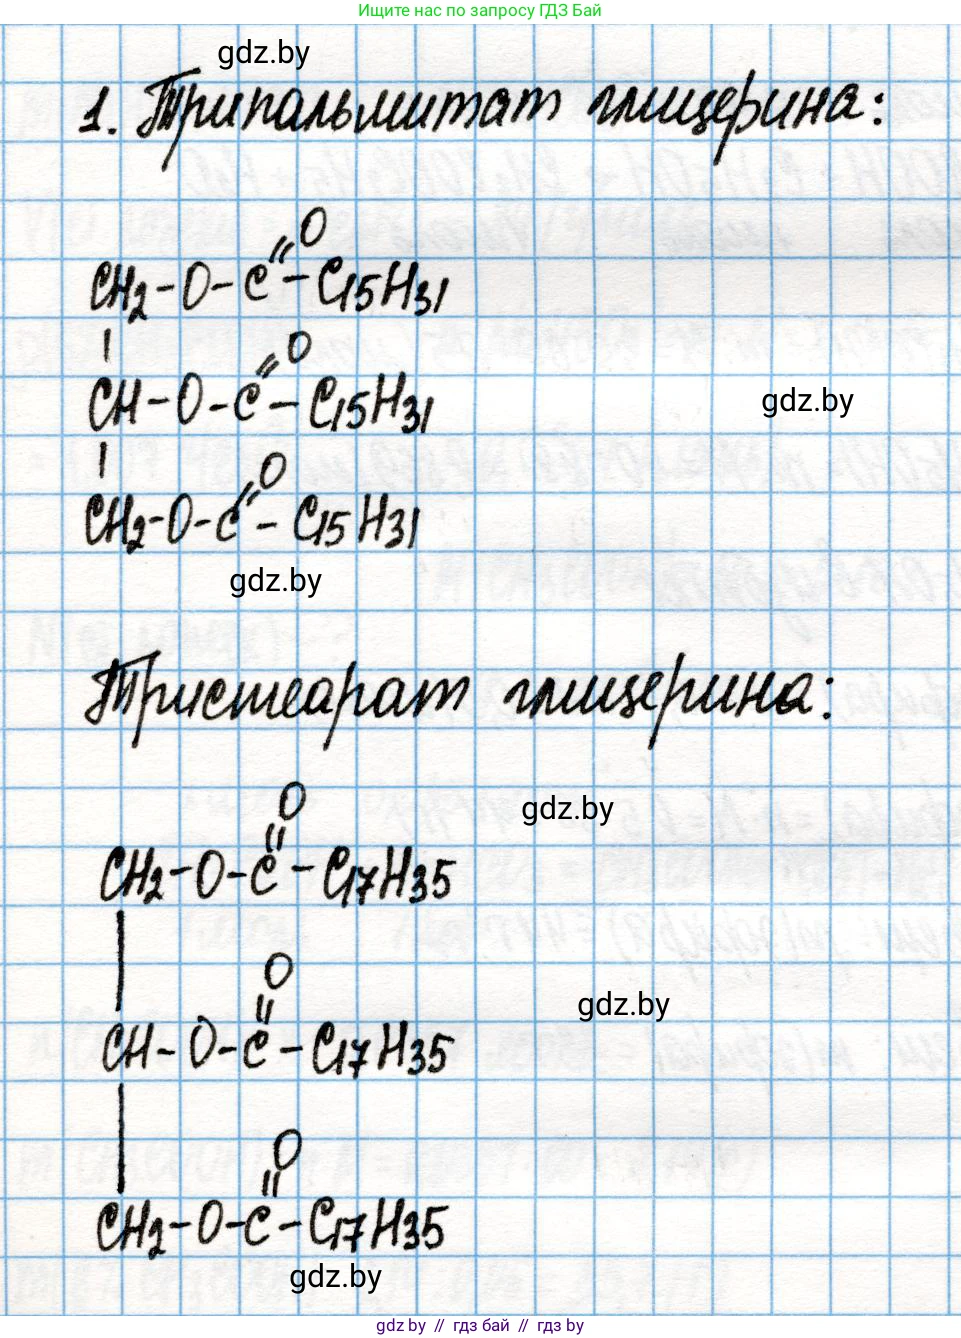 Ищите нас по запросу ГДЗ Бай
gdz.by
1. Трипальмитат глицерина:
O
CH2-O-C-C15H31
O
CH-O-C-C15H31
gdz.by
O
CH2-O-C-C15H31
gdz.by
Тристеарат глицерина:
O
gdz.by
CH2-O-C-C17H35
O
gdz.by
CH-O-C-C17H35
O
CH2-O-C-C17H35
gdz.by
gdz by // гдз бай // gdz by